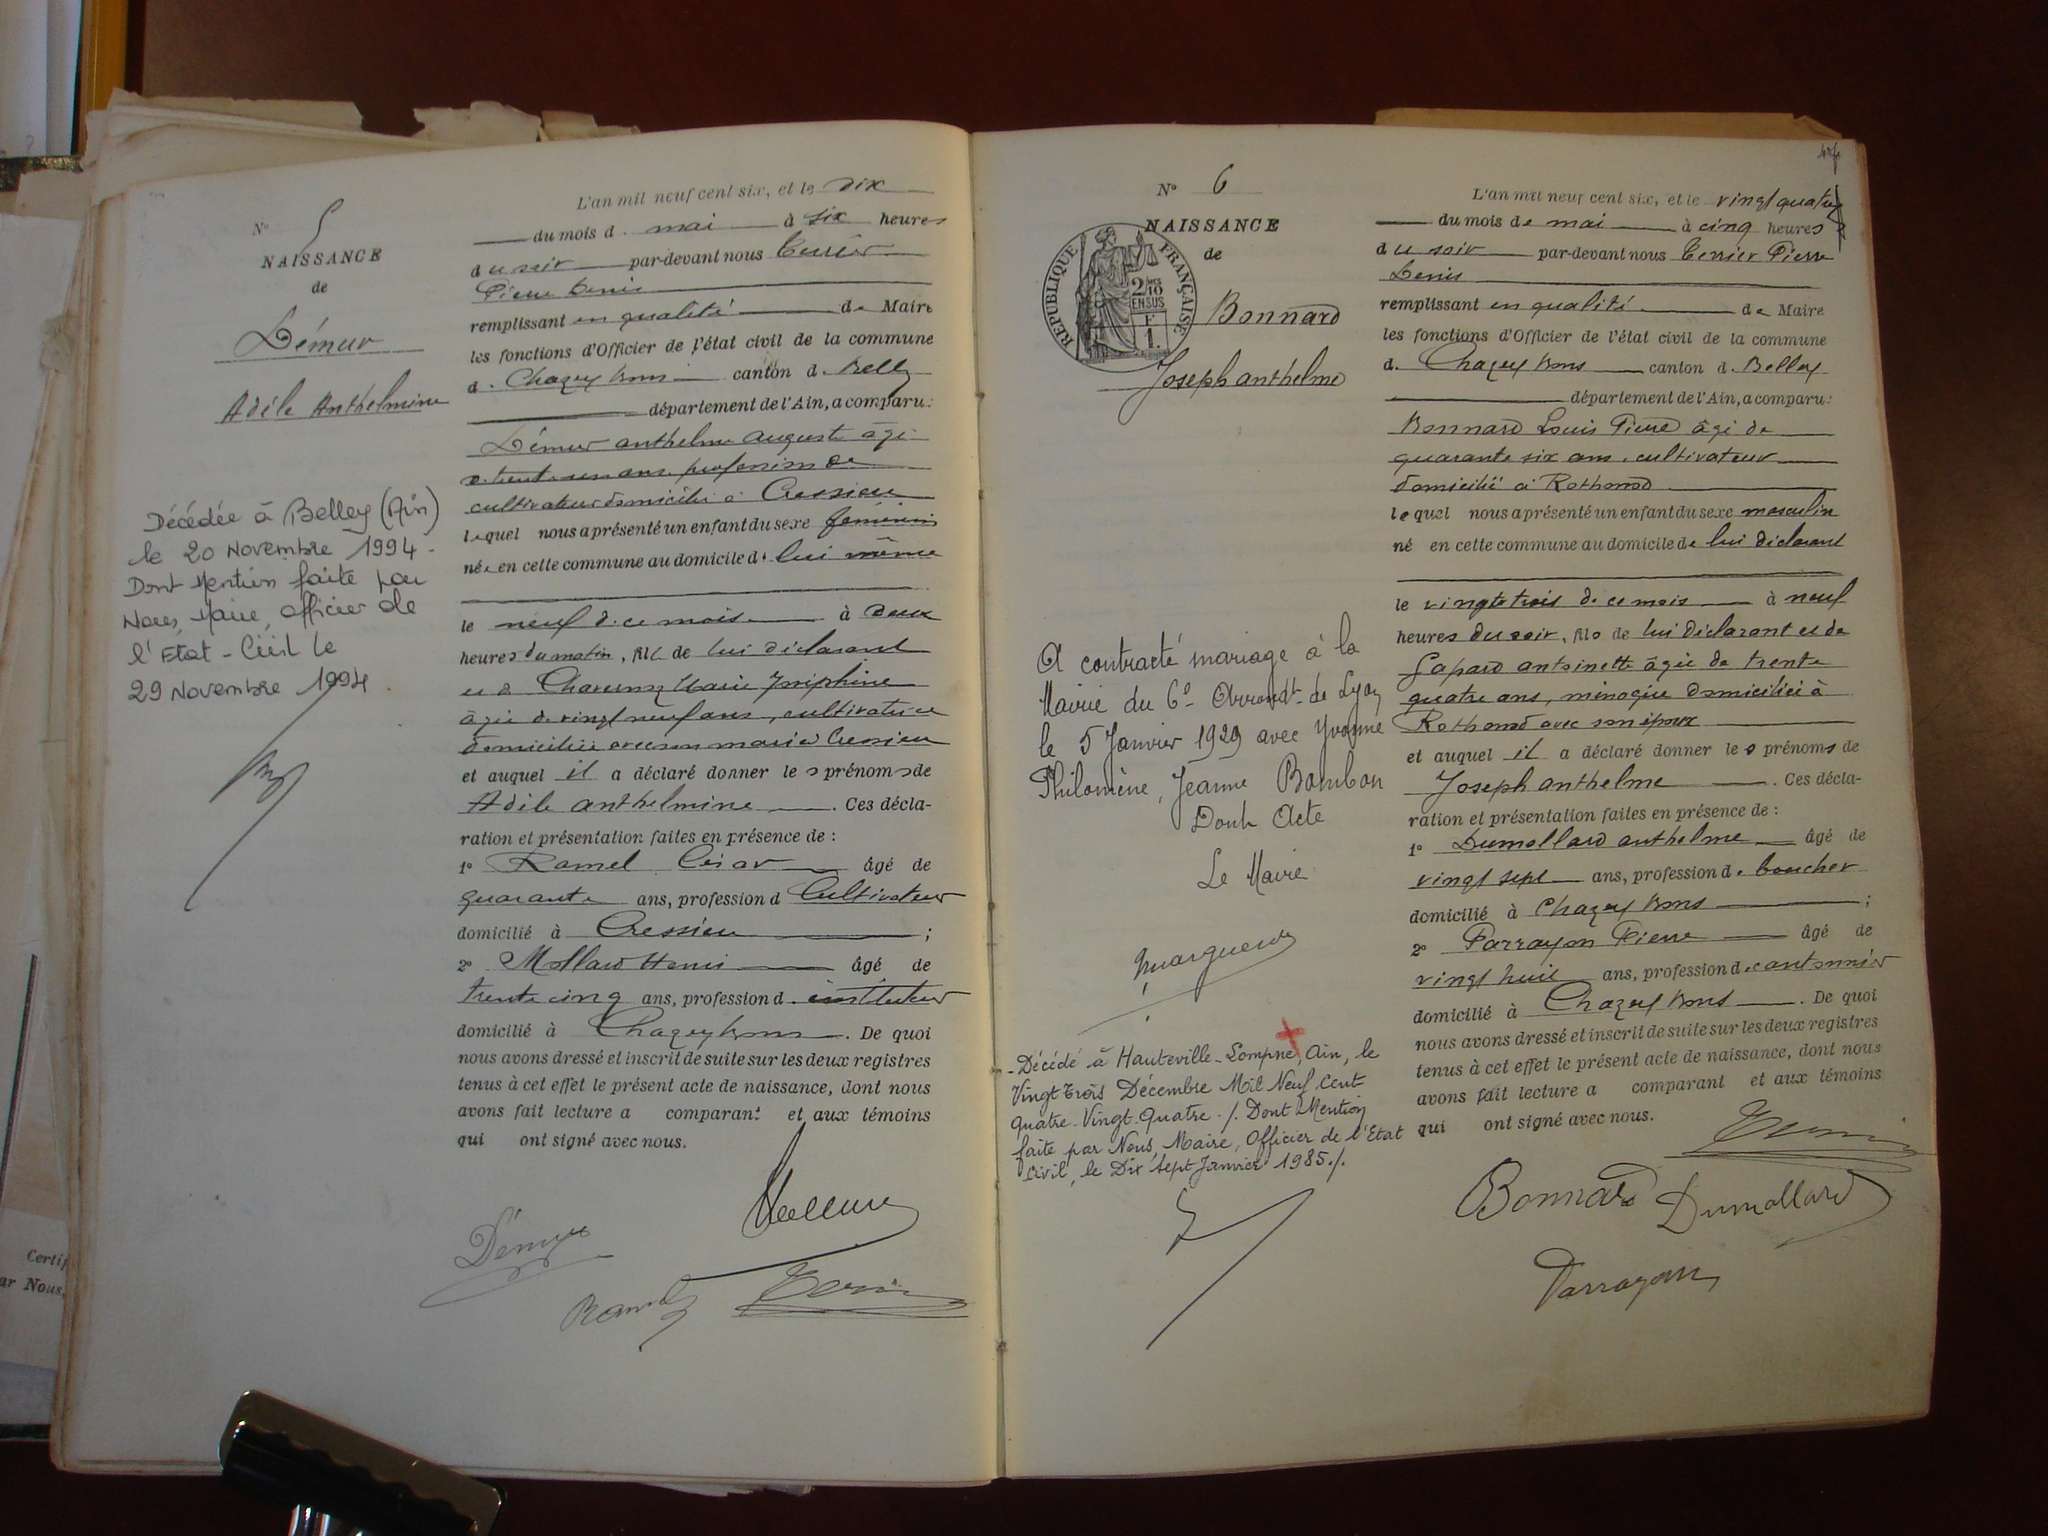 N° 5
NAISSANCE
de
Démur
Adèle Anthelmine
Décédée à Belley (Ain)
le 20 Novembre 1994 -
Dont Mention faite par
Nous, Maire, officier de
l'Etat-Civil le
29 Novembre 1994
L'an mil neuf cent six, et le dix
du mois d. mai à six heures
du soir par-devant nous Terrier
Pierre Denis
remplissant en qualité de Maire
les fonctions d'Officier de l'état civil de la commune
d. Chazey Bons canton d. Belley
département de l'Ain, a comparu :
Démur anthelme auguste âgé
de trente un ans profession de
cultivateur domicilié à Cressieu
lequel nous a présenté un enfant du sexe féminin
née en cette commune au domicile d. lui même
le neuf de ce mois à deux
heures du matin, fille de lui déclarant
et de Marie Joséphine
âgée de vingt neuf ans, cultivatrice
domiciliée avec son mari à Cressieu
et auquel il a déclaré donner les prénoms de
Adèle anthelmine . Ces décla-
ration et présentation faites en présence de :
1° Ramel César âgé de
quarante ans, profession d Cultivateur
domicilié à Cressieu ;
2° Mollard Henri âgé de
trente cinq ans, profession d. instituteur
domicilié à Chazey bons . De quoi
nous avons dressé et inscrit de suite sur les deux registres
tenus à cet effet le présent acte de naissance, dont nous
avons fait lecture a comparant et aux témoins
qui ont signé avec nous.
Démur
Ramel
N° 6
NAISSANCE
de
RÉPUBLIQUE FRANÇAISE
2/10 EN SUS
F
1.
Bonnard
Joseph anthelme
A contracté mariage à la
Mairie du 6e Arrondt de Lyon
le 5 Janvier 1929 avec Yvonne
Philomène, Jeanne Bombon
Dont Acte
Le Maire
- Décédé à Hauteville-Lompnes, Ain, le
Vingt Trois Décembre Mil Neuf Cent
Quatre-Vingt-Quatre ./. Dont Mention
faite par Nous, Maire, Officier de l'Etat
Civil, le Dix Sept Janvier 1985./.
L'an mil neuf cent six, et le vingt quatre
du mois de mai à cinq heures
du soir par-devant nous Terrier Pierre
Denis
remplissant en qualité de Maire
les fonctions d'Officier de l'état civil de la commune
d. Chazey Bons canton d. Belley
département de l'Ain, a comparu :
Bonnard Louis Pierre âgé de
quarante six ans, cultivateur
domicilié à Rothonod
lequel nous a présenté un enfant du sexe masculin
né en cette commune au domicile de lui déclarant
le vingt trois de ce mois à neuf
heures du soir, fils de lui déclarant et de
antoinette âgée de trente
quatre ans, ménagère domiciliée à
Rothonod avec son époux
et auquel il a déclaré donner les prénoms de
Joseph anthelme . Ces décla-
ration et présentation faites en présence de :
1° Dumollard anthelme âgé de
vingt sept ans, profession d. boucher
domicilié à Chazey Bons ;
2° Parrayon Pierre âgé de
vingt huit ans, profession de cantonnier
domicilié à Chazey Bons . De quoi
nous avons dressé et inscrit de suite sur les deux registres
tenus à cet effet le présent acte de naissance, dont nous
avons fait lecture a comparant et aux témoins
qui ont signé avec nous.
Bonnard Dumollard
Parrayon
Certif
ar Nous,